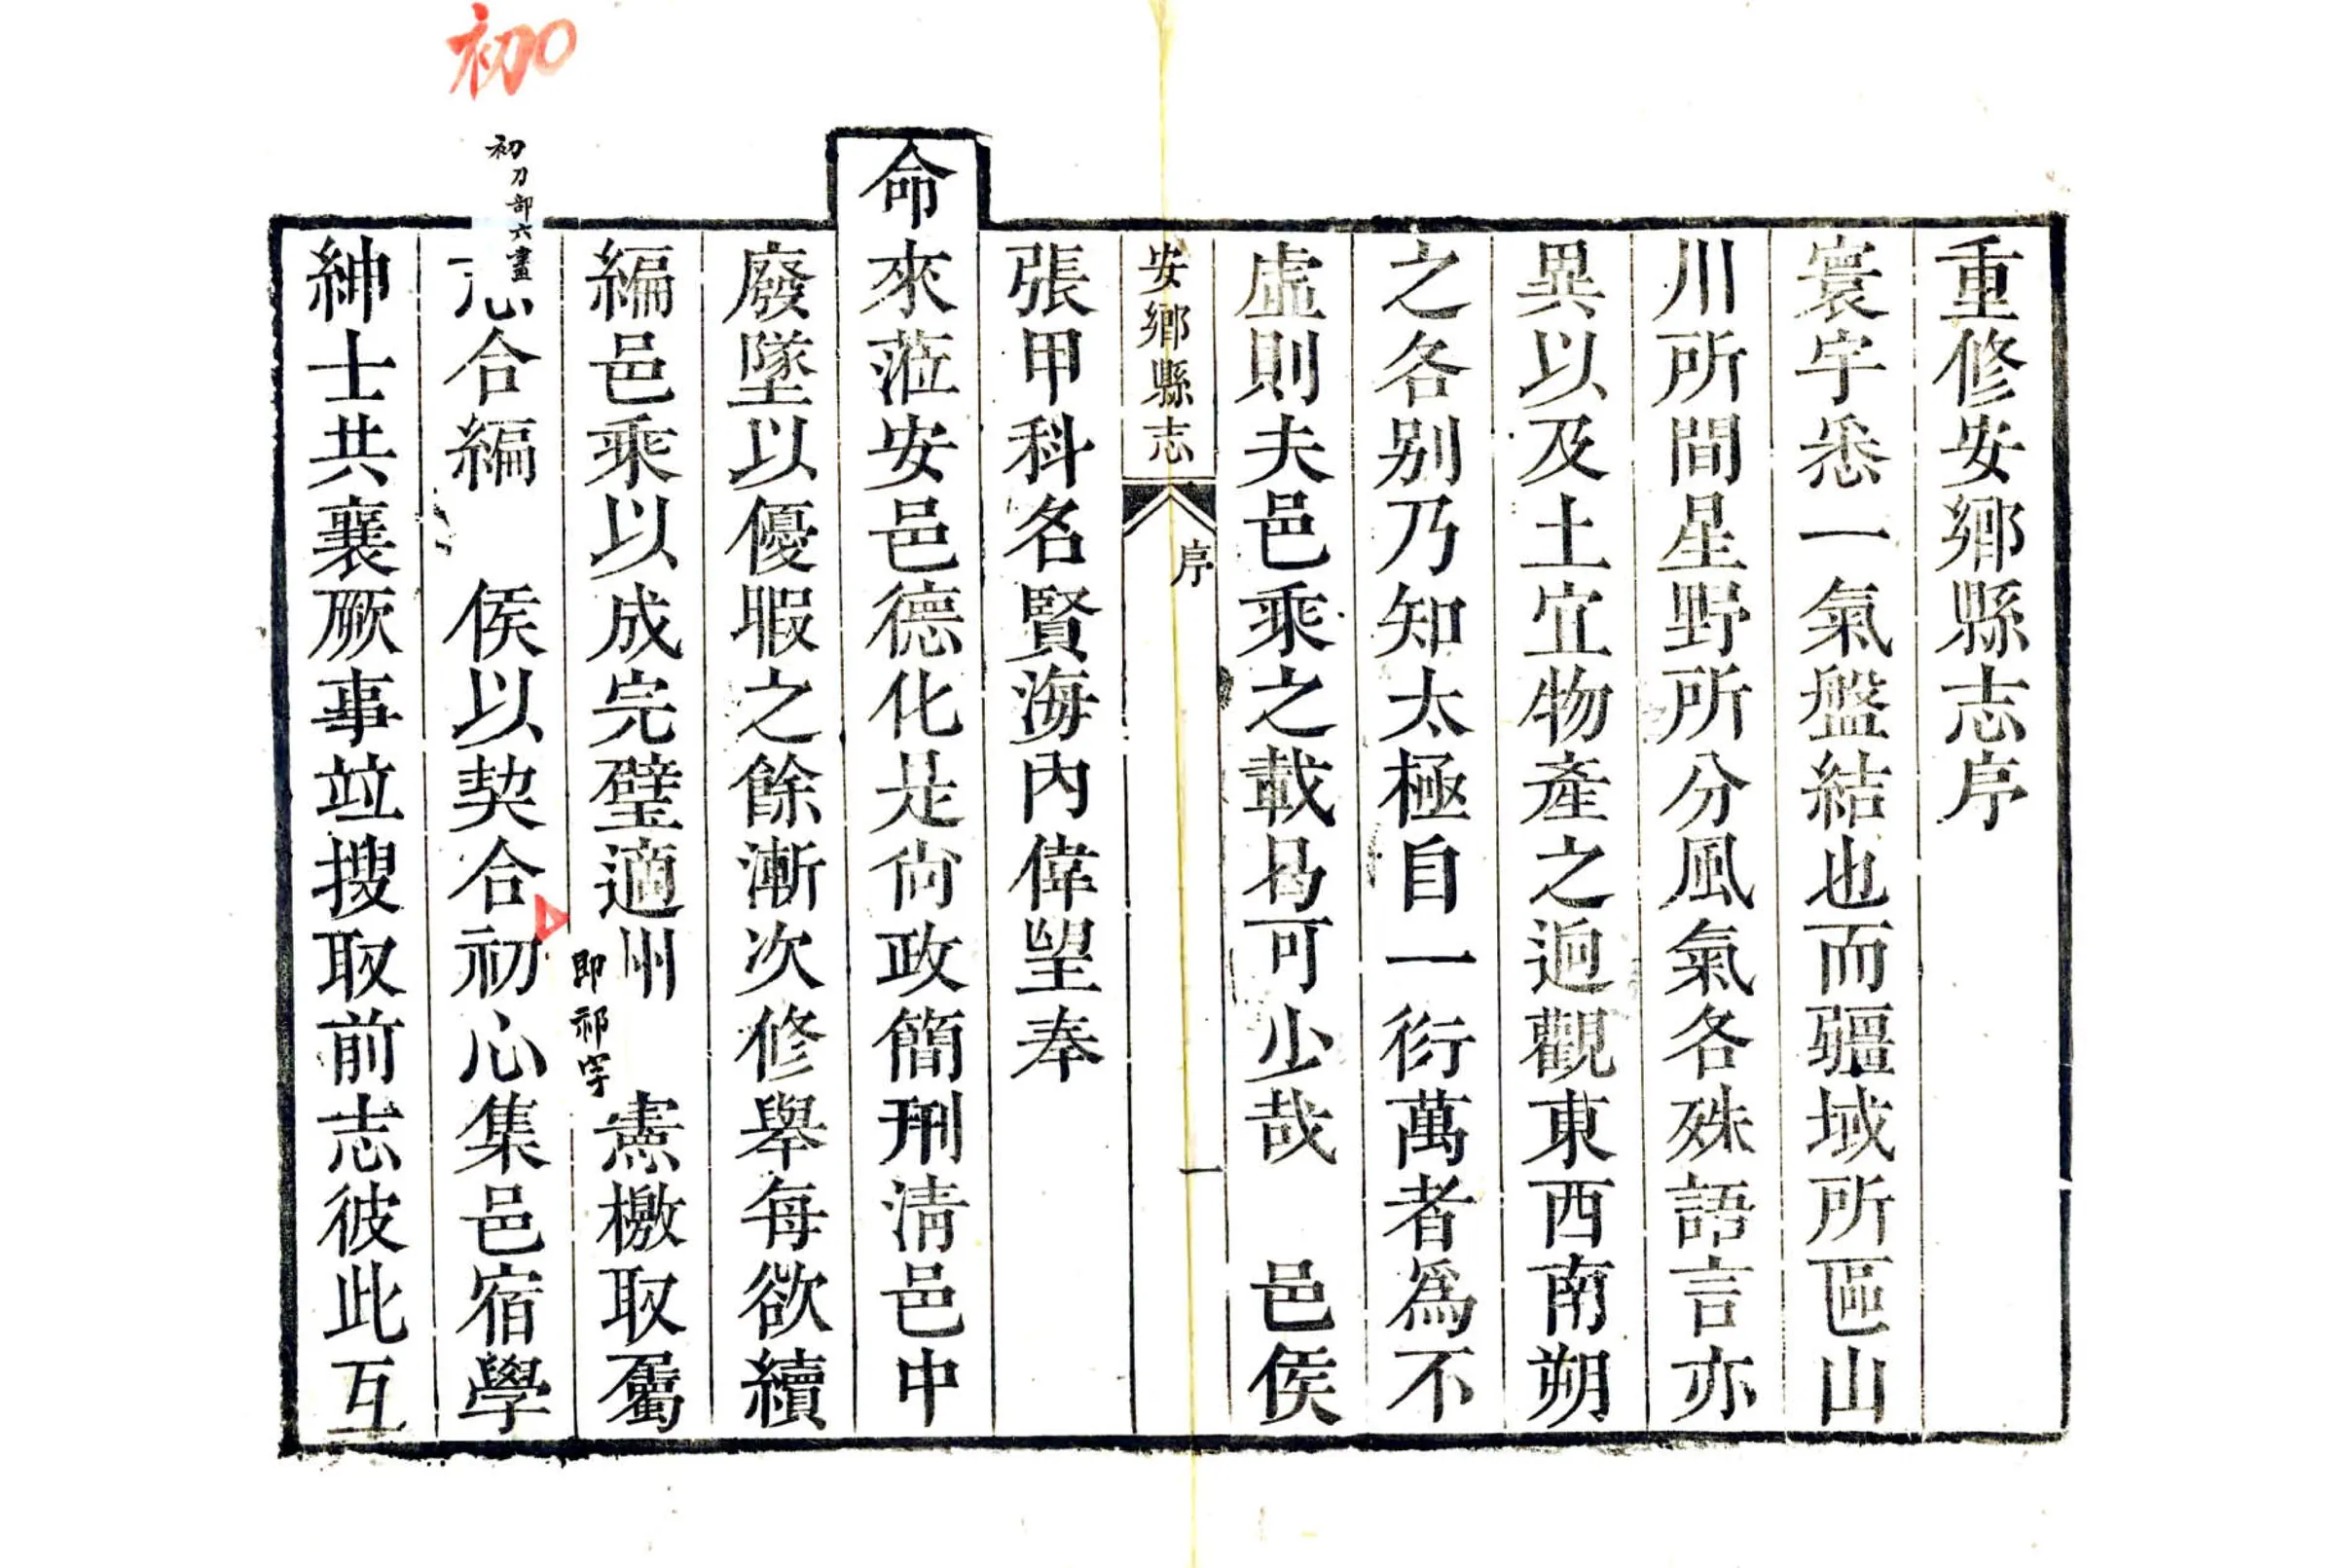 重修安鄉縣志序
寰宇悉一氣盤結也而疆域所區山
川所間星野所分風氣各殊語言亦
異以及土宜物產之迥觀東西南朔
之各別乃知太極自一衍萬者爲不
虛則夫邑乘之載曷可少哉　邑侯
安鄉縣志　序　一
張甲科名賢海內偉望奉
命來蒞安邑德化是尙政簡刑清邑中
廢墜以優暇之餘漸次修舉每欲續
編邑乘以成完璧適州　憲檄取屬
志合編　侯以契合初心集邑宿學
紳士共襄厥事竝搜取前志彼此互
初
初刀部六畫
即祁字